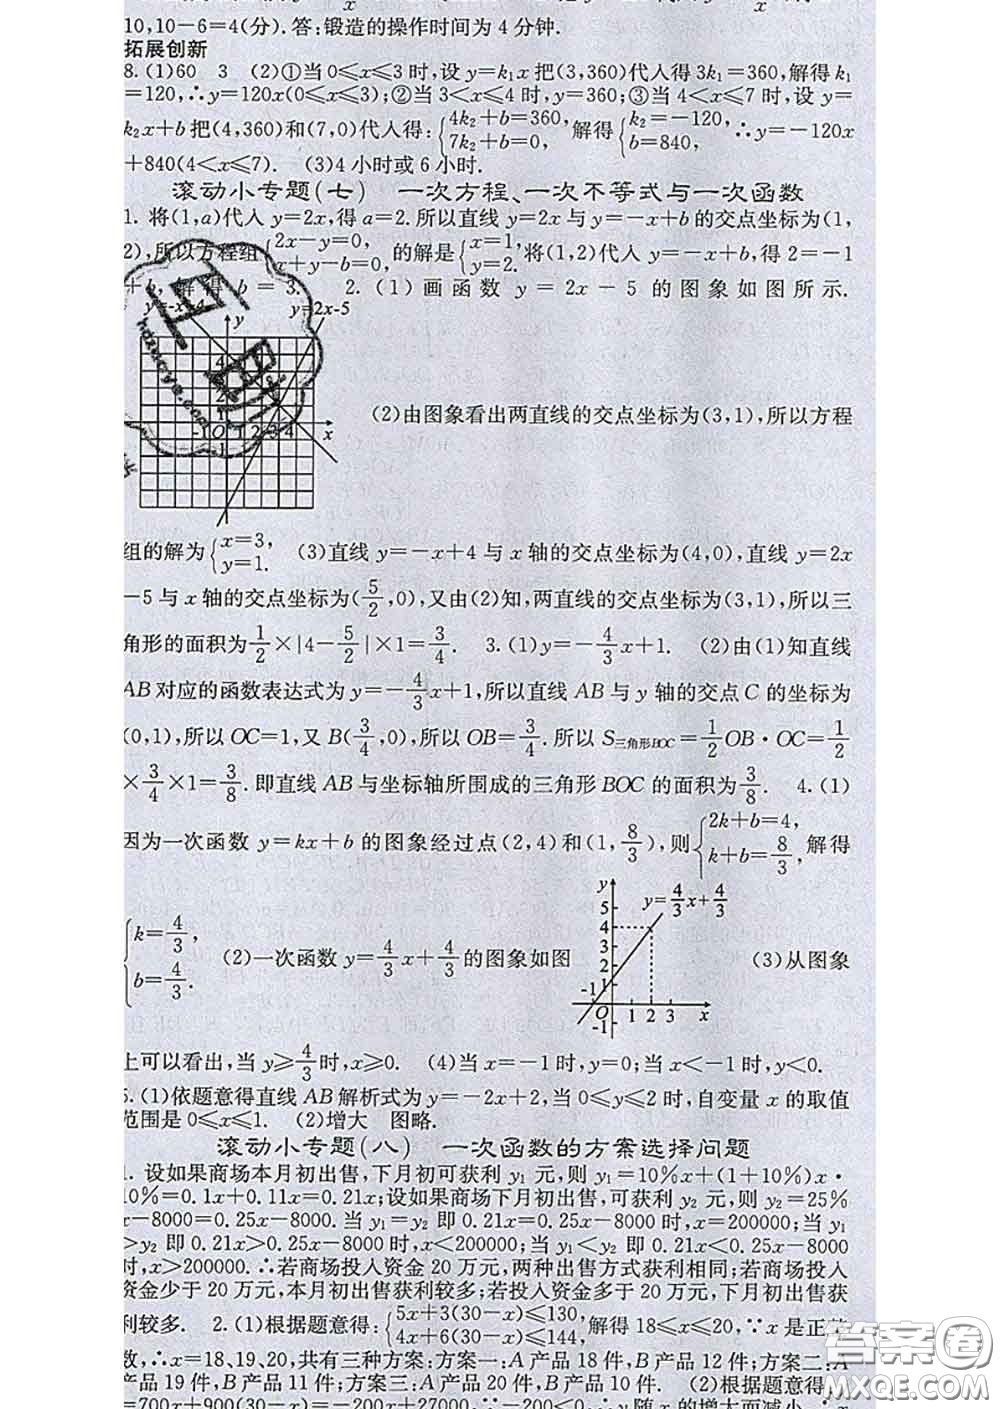 10,10－6＝4(分).答:锻造的操作时间为 4 分钟.
拓展创新
8.(1)60　3　(2)①当 0≤x≤3 时,设 y＝k₁x 把(3,360)代入得 3k₁＝360,解得 k₁
＝120,∴y＝120x(0≤x≤3);②当 3<x≤4 时,y＝360;③当 4<x≤7 时,设 y＝
k₂x＋b 把(4,360)和(7,0)代入得:{4k₂＋b＝360, 7k₂＋b＝0, 解得{k₂＝－120, b＝840, ∴y＝－120x
＋840(4<x≤7).　(3)4 小时或 6 小时.
滚动小专题(七)　一次方程、一次不等式与一次函数
1. 将(1,a)代入 y＝2x,得 a＝2.所以直线 y＝2x 与 y＝－x＋b 的交点坐标为(1,
2),所以方程组{2x－y＝0, x＋y－b＝0, 的解是{x＝1, y＝2. 将(1,2)代入 y＝－x＋b,得 2＝－1
＋b,解得 b＝3.　2.(1)画函数 y＝2x－5 的图象如图所示.
y=-x+4　y　y=2x-5
4
-1 O 1 2 3 4 x
(2)由图象看出两直线的交点坐标为(3,1),所以方程
组的解为{x＝3, y＝1.　(3)直线 y＝－x＋4 与 x 轴的交点坐标为(4,0),直线 y＝2x
－5 与 x 轴的交点坐标为(5/2,0),又由(2)知,两直线的交点坐标为(3,1),所以三
角形的面积为1/2×|4－5/2|×1＝3/4.　3.(1)y＝－4/3x＋1.　(2)由(1)知直线
AB 对应的函数表达式为 y＝－4/3x＋1,所以直线 AB 与 y 轴的交点 C 的坐标为
(0,1),所以 OC＝1,又 B(3/4,0),所以 OB＝3/4.所以 S三角形BOC＝1/2OB·OC＝1/2
×3/4×1＝3/8.即直线 AB 与坐标轴所围成的三角形 BOC 的面积为3/8.　4.(1)
因为一次函数 y＝kx＋b 的图象经过点(2,4)和(1,8/3),则{2k＋b＝4, k＋b＝8/3, 解得
{k＝4/3, b＝4/3.　(2)一次函数 y＝4/3x＋4/3的图象如图
y　y=4/3x+4/3
5
4
3
2
1
-1 O 1 2 3 x
-1
(3)从图象
上可以看出,当 y≥4/3时,x≥0.　(4)当 x＝－1 时,y＝0;当 x<－1 时,y<0.
5.(1)依题意得直线 AB 解析式为 y＝－2x＋2,当 0≤y≤2 时,自变量 x 的取值
范围是 0≤x≤1.　(2)增大　图略.
滚动小专题(八)　一次函数的方案选择问题
1. 设如果商场本月初出售,下月初可获利 y₁ 元,则 y₁＝10%x＋(1＋10%)x·
10%＝0.1x＋0.11x＝0.21x;设如果商场下月初出售,可获利 y₂ 元,则 y₂＝25%
x－8000＝0.25x－8000.当 y₁＝y₂ 即 0.21x＝0.25x－8000 时,x＝200000;当 y₁
>y₂ 即 0.21x>0.25x－8000 时,x<200000;当 y₁<y₂ 即 0.21x<0.25x－8000
时,x>200000.∴若商场投入资金 20 万元,两种出售方式获利相同;若商场投入
资金少于 20 万元,本月初出售获利较多;若投入资金多于 20 万元,下月初出售获
利较多.　2.(1)根据题意得:{5x＋3(30－x)≤130, 4x＋6(30－x)≤144, 解得 18≤x≤20,∵x 是正整
数,∴x＝18、19、20,共有三种方案:方案一:A 产品 18 件,B 产品 12 件;方案二:A
产品 19 件,B 产品 11 件;方案三:A 产品 20 件,B 产品 10 件.　(2)根据题意得:y
＝700x＋900(30－x)＝－200x＋27000,∵－200<0,∴y 随 x 的增大而减小,∴x
答案圈
MXQE.COM